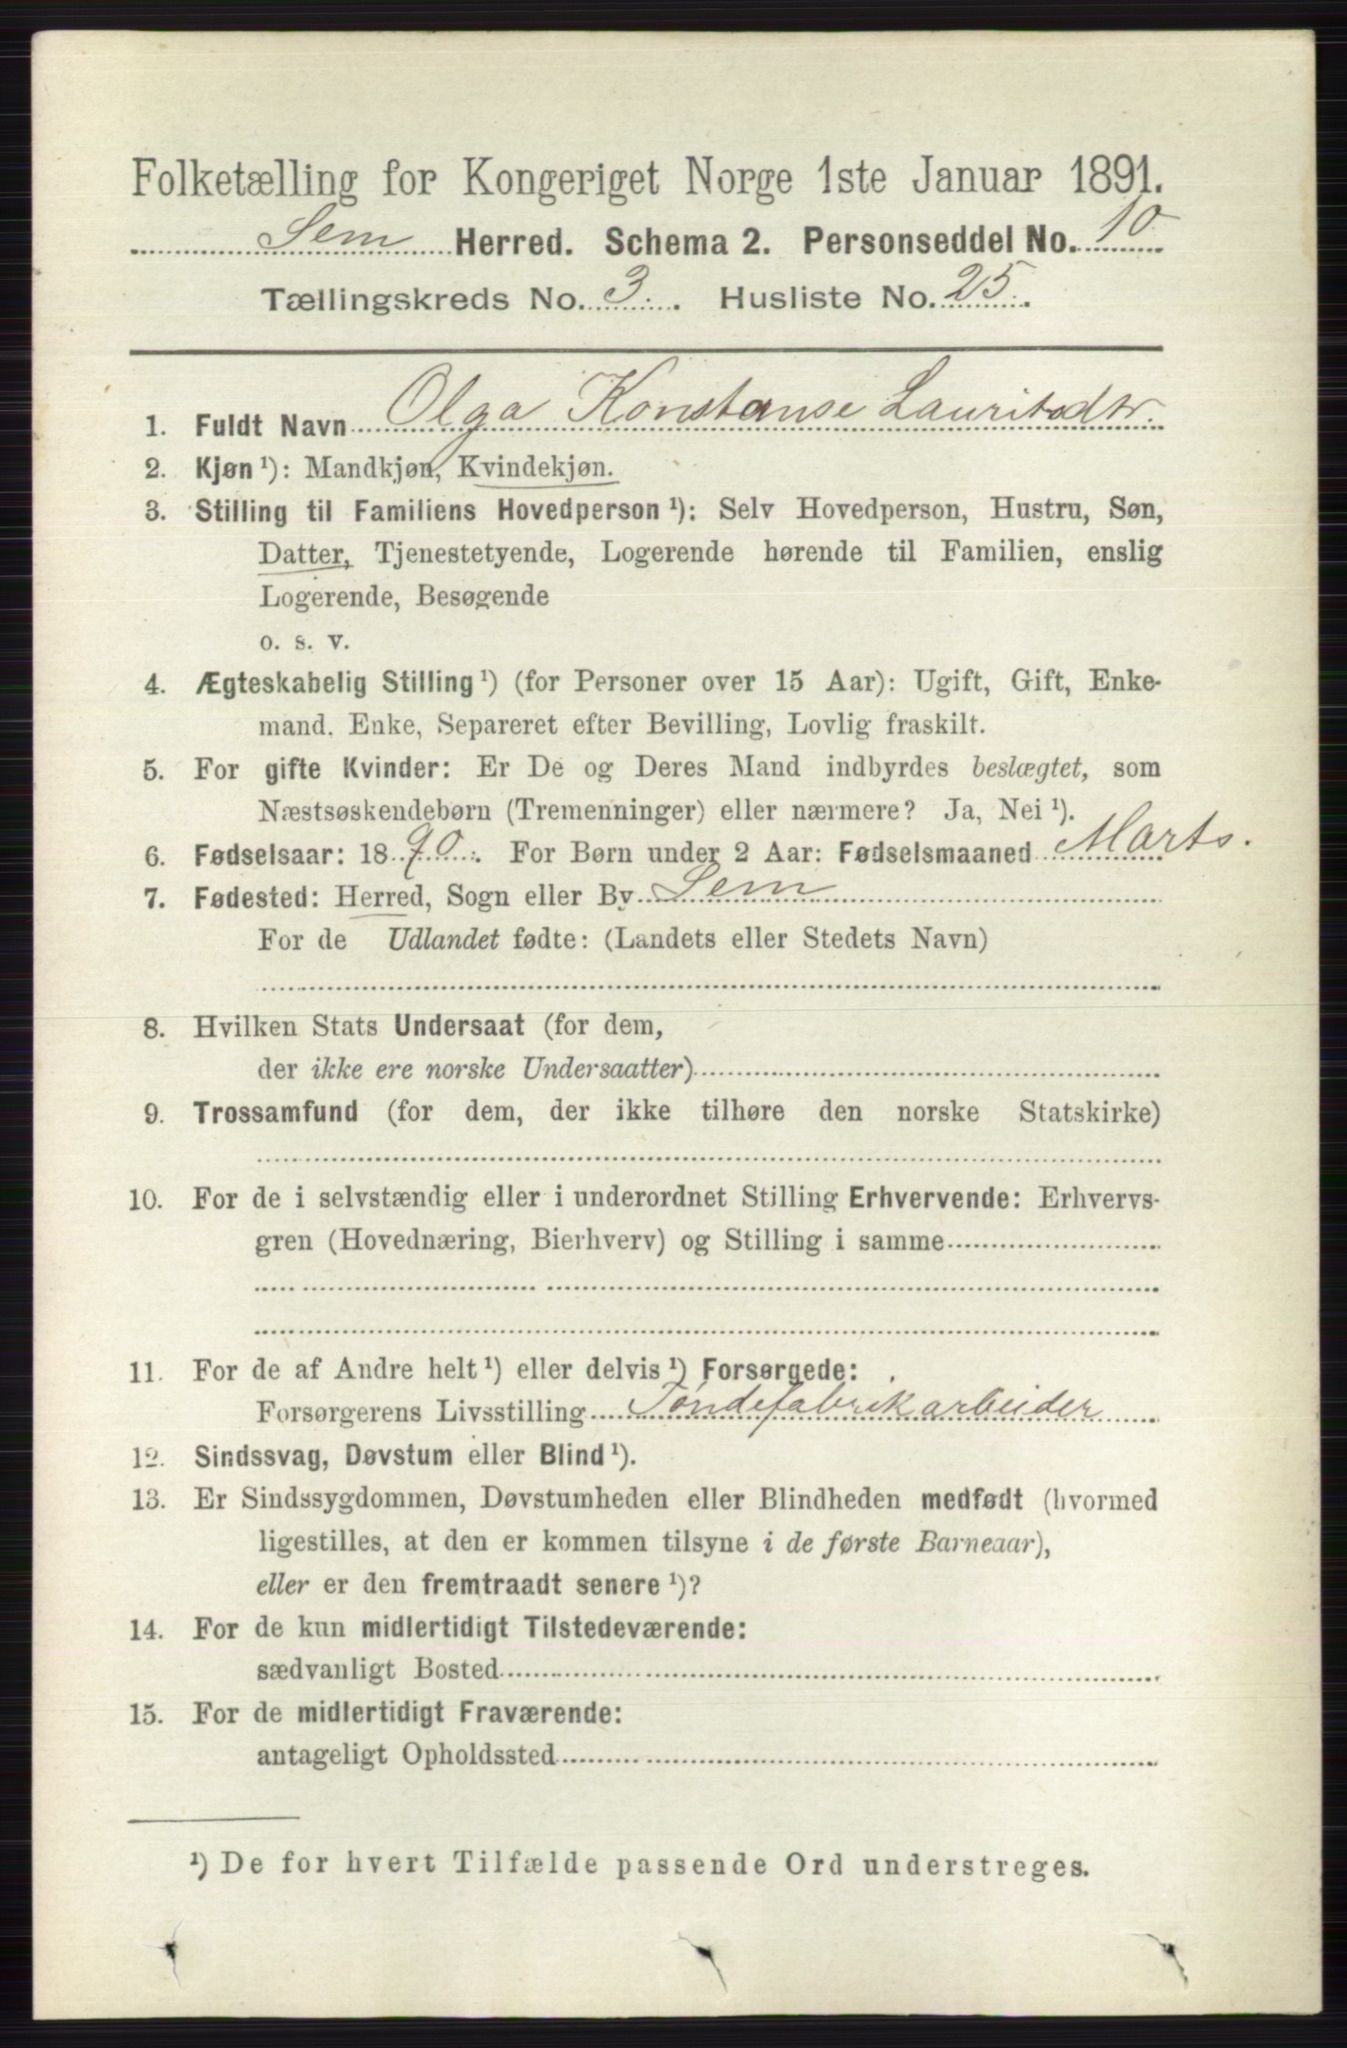 Folketælling for Kongeriget Norge 1ste Januar 1891.
Sem Herred. Schema 2. Personseddel No. 10
Tællingskreds No. 3. Husliste No. 25.
1. Fuldt Navn Olga Konstanse Lauritsdtr.
2. Kjøn ¹): Mandkjøn, Kvindekjøn.
3. Stilling til Familiens Hovedperson ¹): Selv Hovedperson, Hustru, Søn,
Datter, Tjenestetyende, Logerende hørende til Familien, enslig
Logerende, Besøgende
o. s. v.
4. Ægteskabelig Stilling ¹) (for Personer over 15 Aar): Ugift, Gift, Enke-
mand, Enke, Separeret efter Bevilling, Lovlig fraskilt.
5. For gifte Kvinder: Er De og Deres Mand indbyrdes beslægtet, som
Næstsøskendebørn (Tremenninger) eller nærmere? Ja, Nei ¹).
6. Fødselsaar: 1890. For Børn under 2 Aar: Fødselsmaaned Marts.
7. Fødested: Herred, Sogn eller By Sem
For de Udlandet fødte: (Landets eller Stedets Navn)
8. Hvilken Stats Undersaat (for dem,
der ikke ere norske Undersaatter)
9. Trossamfund (for dem, der ikke tilhøre den norske Statskirke)
10. For de i selvstændig eller i underordnet Stilling Erhvervende: Erhvervs-
gren (Hovednæring, Bierhverv) og Stilling i samme
11. For de af Andre helt ¹) eller delvis ¹) Forsørgede:
Forsørgerens Livsstilling Tøndefabrikarbeider
12. Sindssvag, Døvstum eller Blind ¹).
13. Er Sindssygdommen, Døvstumheden eller Blindheden medfødt (hvormed
ligestilles, at den er kommen tilsyne i de første Barneaar),
eller er den fremtraadt senere ¹)?
14. For de kun midlertidigt Tilstedeværende:
sædvanligt Bosted
15. For de midlertidigt Fraværende:
antageligt Opholdssted
¹) De for hvert Tilfælde passende Ord understreges.